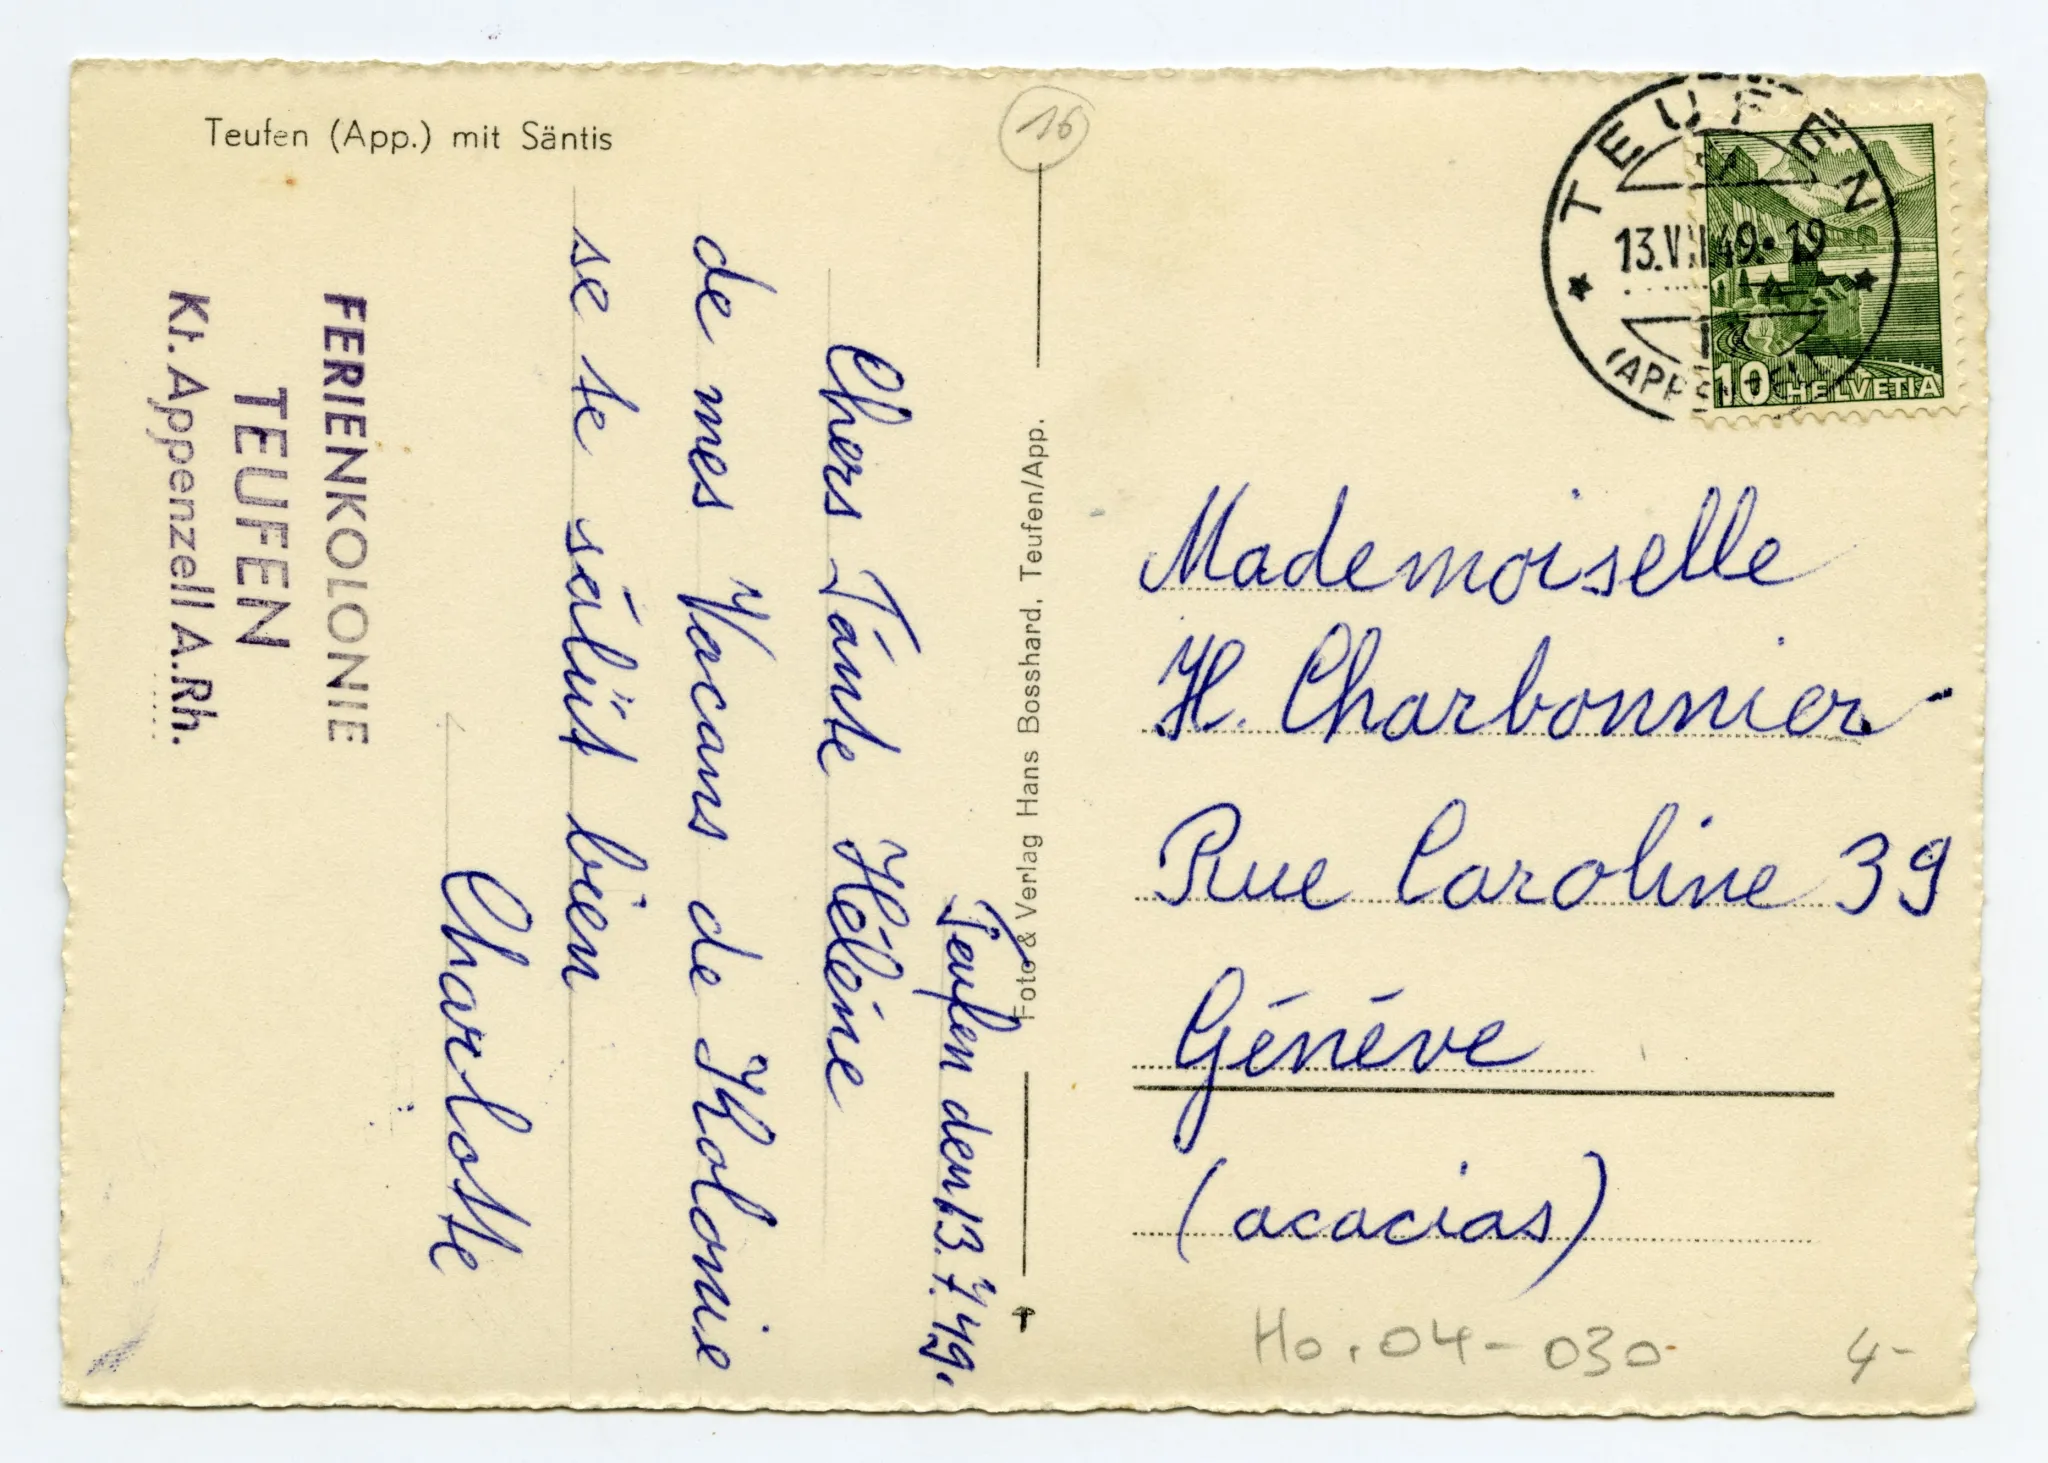 Teufen (App.) mit Säntis
FERIENKOLONIE
TEUFEN
Kt. Appenzell A.Rh.
Teufen den 13.7.49.
Chers Tánte Héléne
de mes Vacans de Kholonie
se te sálüt bien
Charlotte
Foto & Verlag Hans Bosshard, Teufen/App.
16
TEUFEN
13.VII.49. 19
(APPENZELL)
10 HELVETIA
Mademoiselle
H. Charbonnier
Rue Caroline 39
Généve
(acacias)
Ho. 04-030
4-